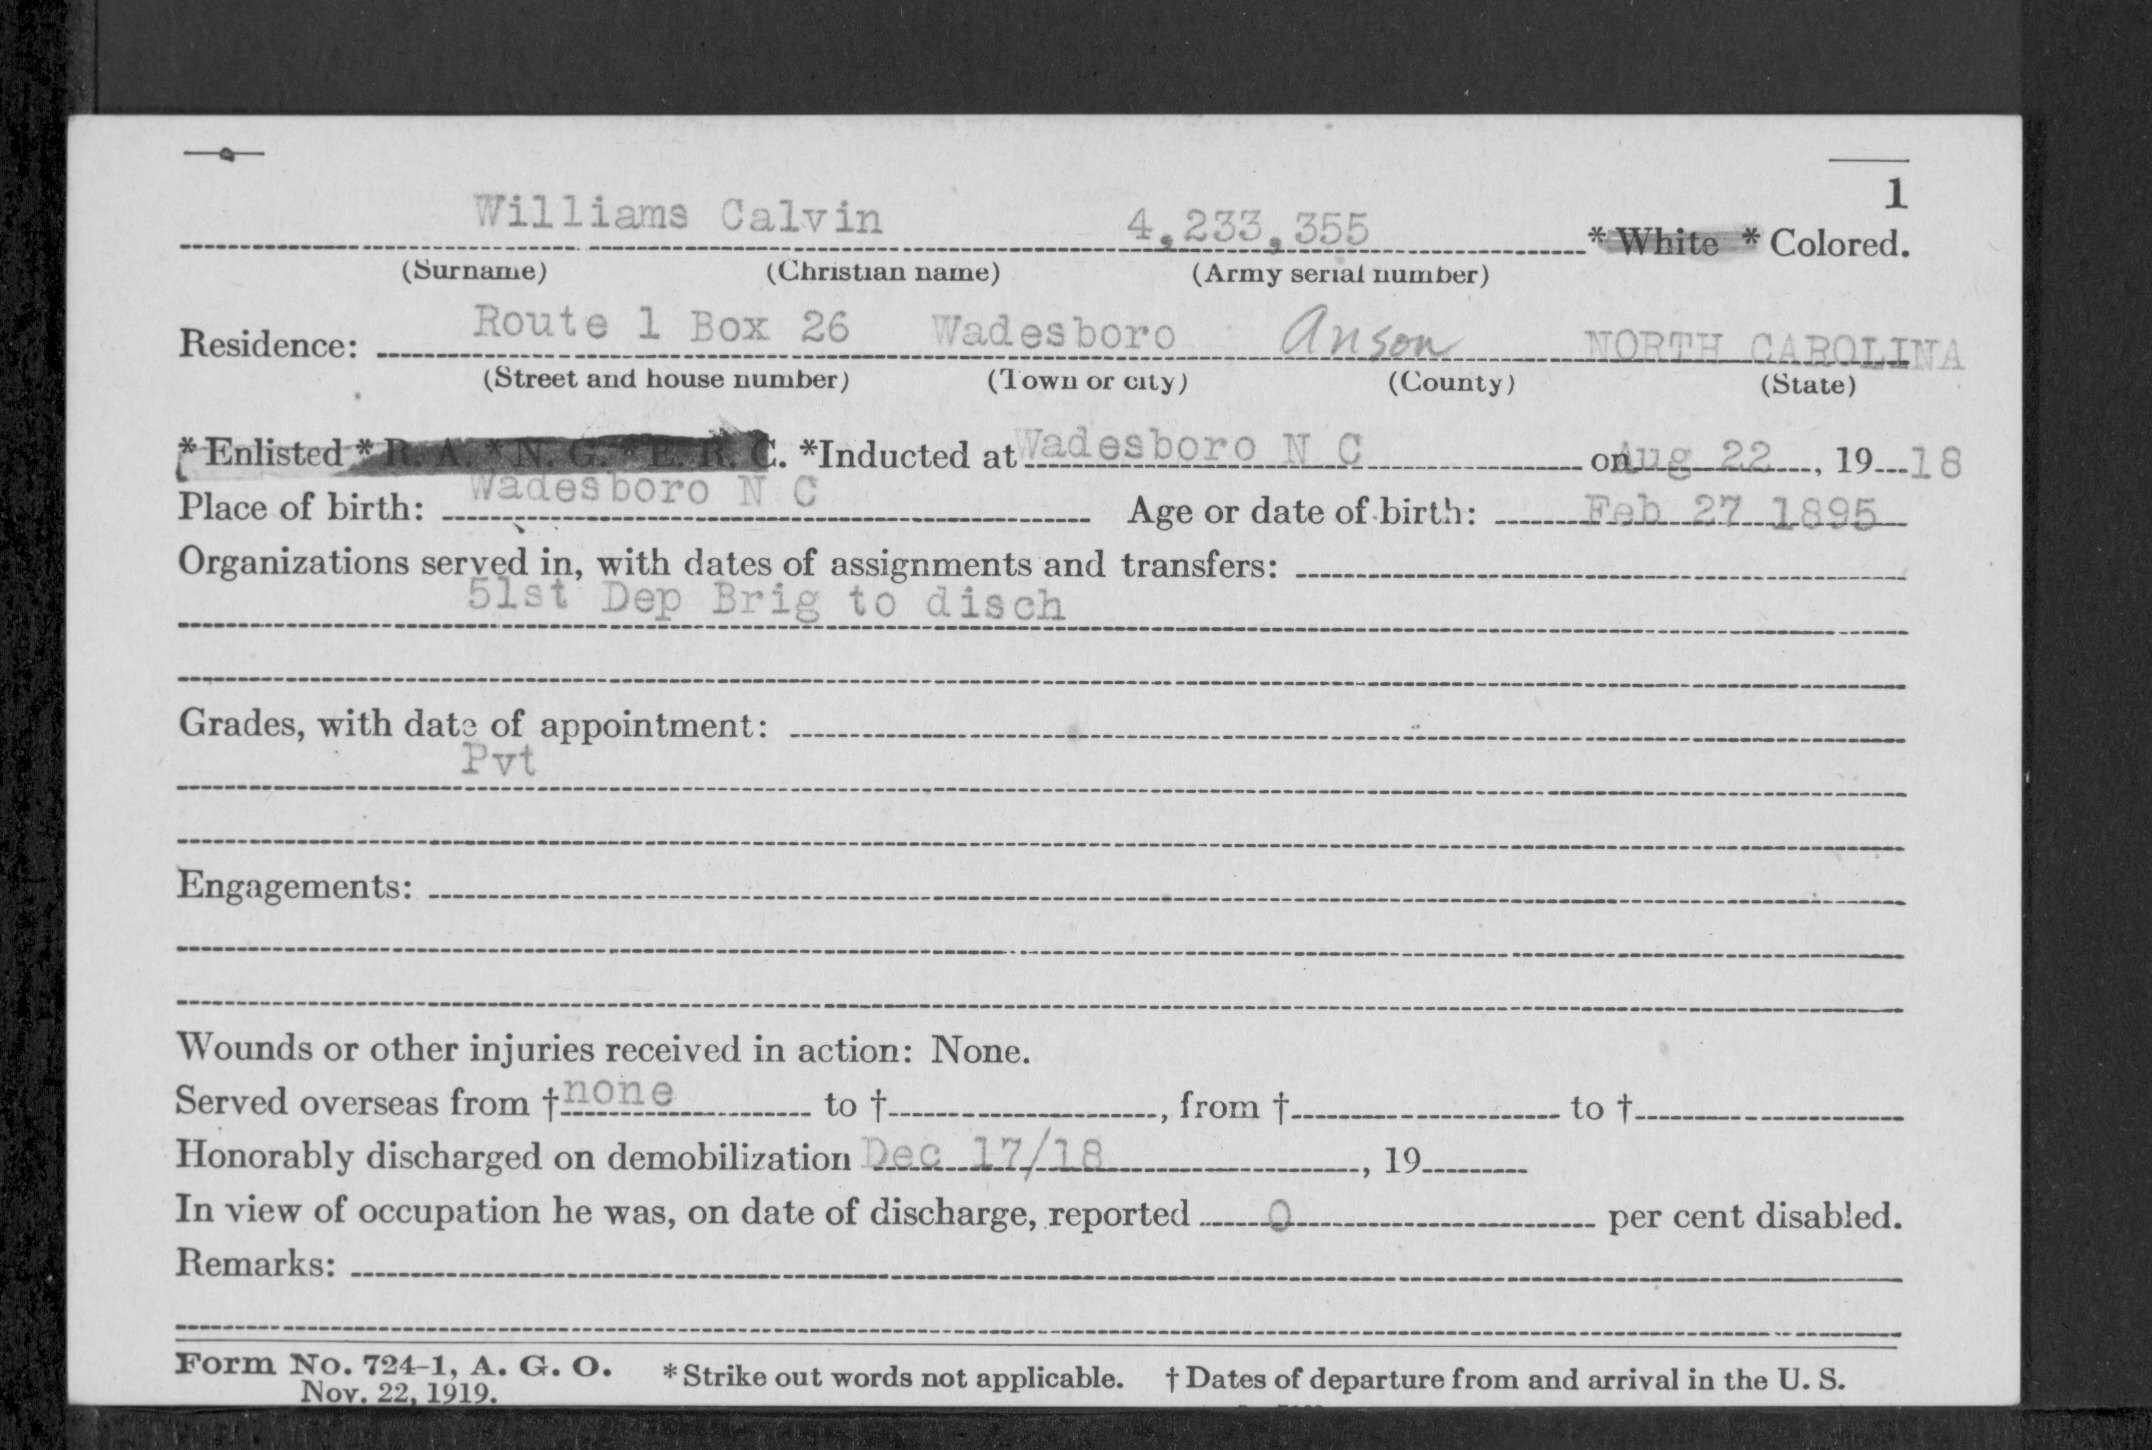 1
Williams Calvin 4,233,355 * White * Colored.
(Surname) (Christian name) (Army serial number)
Residence: Route 1 Box 26 Wadesboro Anson NORTH CAROLINA
(Street and house number) (Town or city) (County) (State)
* Enlisted * R. A. * N. G. * E. R. C. *Inducted at Wadesboro N C on Aug 22, 19 18
Place of birth: Wadesboro N C Age or date of birth: Feb 27 1895
Organizations served in, with dates of assignments and transfers:
51st Dep Brig to disch
Grades, with date of appointment:
Pvt
Engagements:
Wounds or other injuries received in action: None.
Served overseas from † none to †, from † to †
Honorably discharged on demobilization Dec 17/18, 19
In view of occupation he was, on date of discharge, reported 0 per cent disabled.
Remarks:
Form No. 724-1, A. G. O. * Strike out words not applicable. † Dates of departure from and arrival in the U. S.
Nov. 22, 1919.